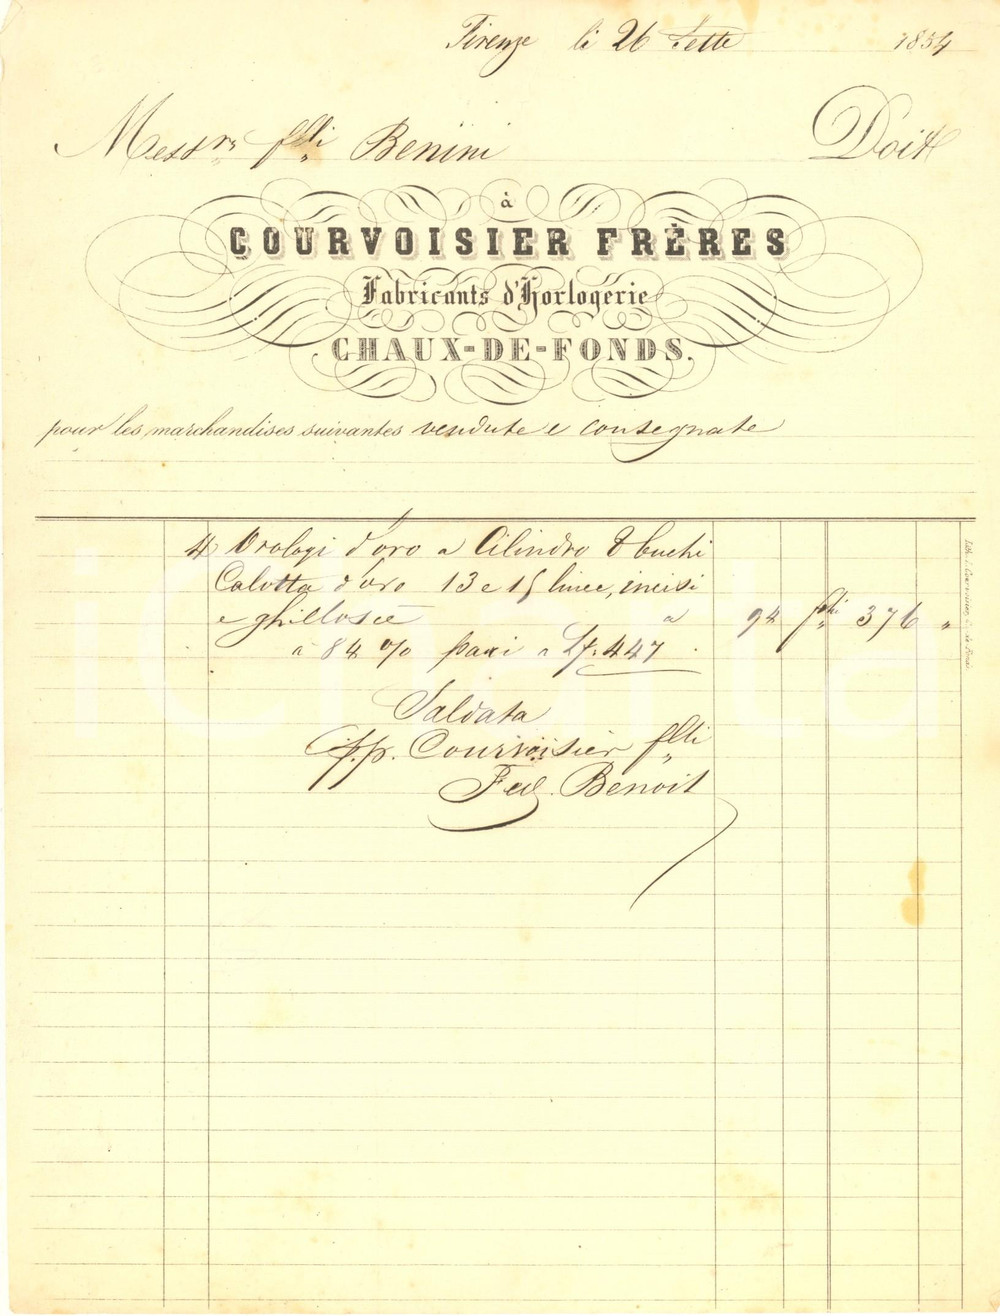 Firenze li 26 Sette 1854
Messrs flli Benini Doit
à
COURVOISIER FRÈRES
Fabricants d'Horlogerie
CHAUX-DE-FONDS.
pour les marchandises suivantes vendute e consegnate
4 Orologi d'oro a Cilindro 8 buchi
Calotta d'oro 13 e 15 linee, incisi
e ghillosce a 94 fchi 376 "
a 84 % pari a Lf. 447
Saldata
p.p. Courvoisier flli
Fed. Benoit